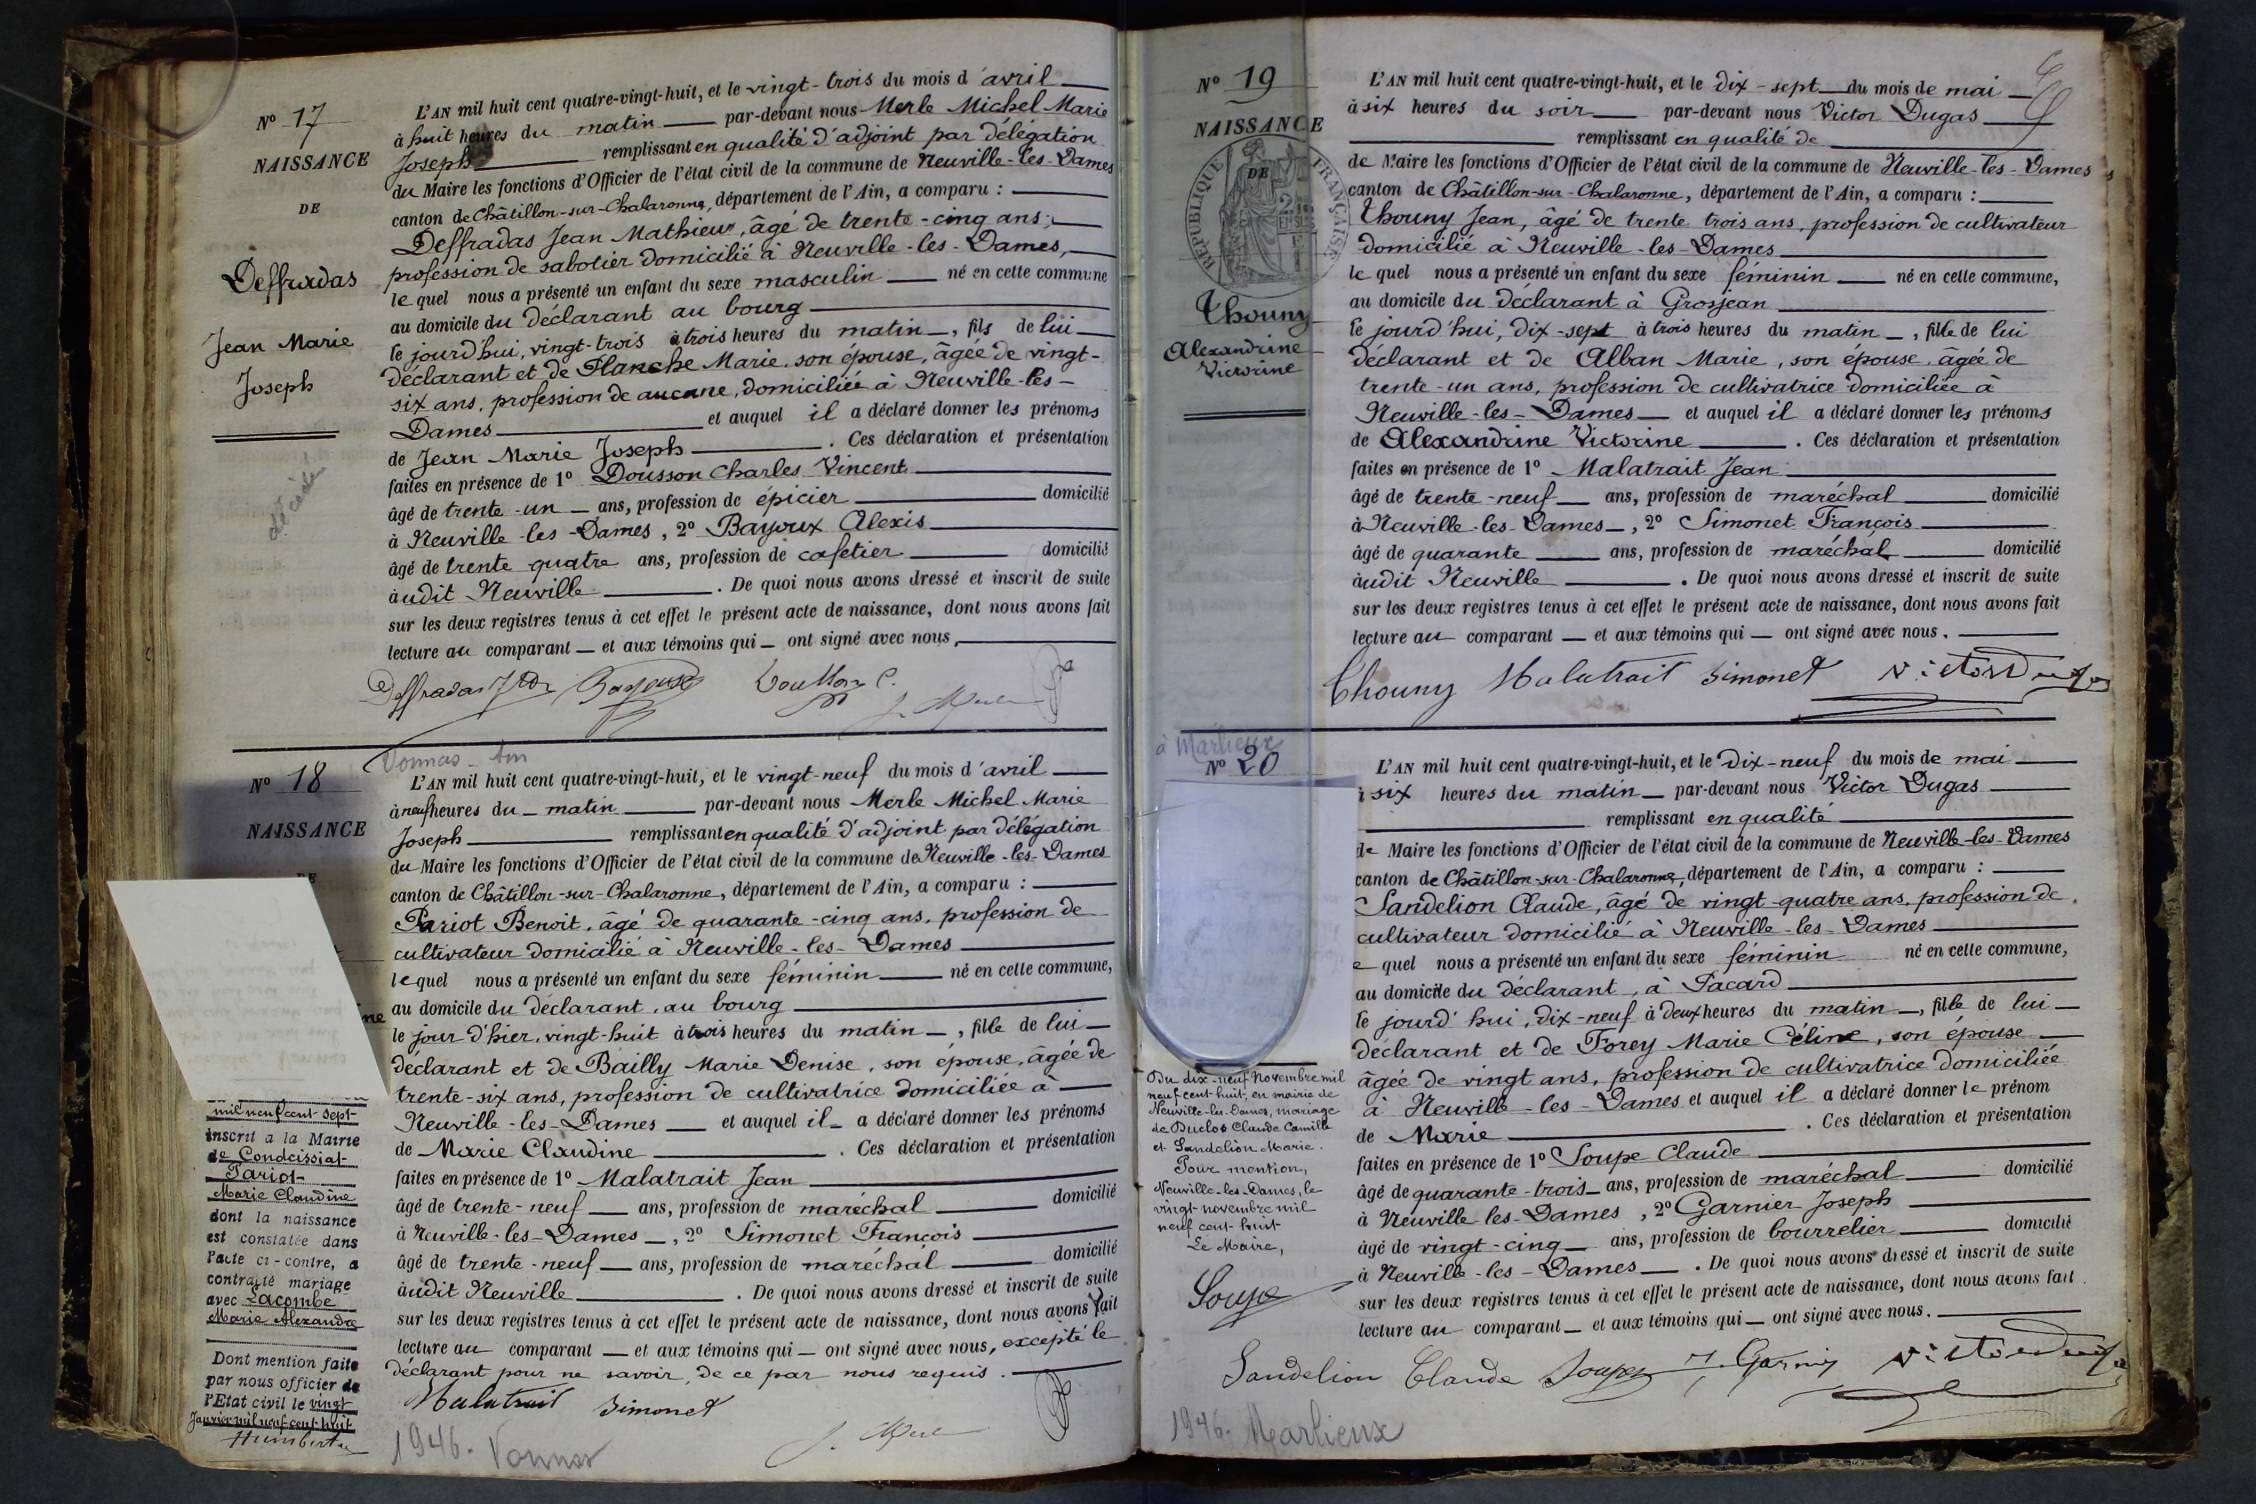 N° 17
NAISSANCE
DE
Deffradas
Jean Marie
Joseph
décédé
L'AN mil huit cent quatre-vingt-huit, et le vingt-trois du mois d'avril
à huit heures du matin par-devant nous Merle Michel Marie
Joseph remplissant en qualité d'adjoint par délégation
du Maire les fonctions d'Officier de l'état civil de la commune de Neuville-les-Dames
canton de Châtillon-sur-Chalaronne, département de l'Ain, a comparu :
Deffradas Jean Mathieu, âgé de trente-cinq ans,
profession de sabotier domicilié à Neuville-les-Dames,
le quel nous a présenté un enfant du sexe masculin né en cette commune
au domicile du déclarant au bourg
le jourd'hui, vingt-trois à trois heures du matin, fils de lui
déclarant et de Planche Marie, son épouse, âgée de vingt-
six ans, profession de aucune, domiciliée à Neuville-les-
Dames et auquel il a déclaré donner les prénoms
de Jean Marie Joseph. Ces déclaration et présentation
faites en présence de 1° Dousson Charles Vincent
âgé de trente-un ans, profession de épicier domicilié
à Neuville-les-Dames, 2° Bayoux Alexis
âgé de trente quatre ans, profession de cafetier domicilié
àudit Neuville. De quoi nous avons dressé et inscrit de suite
sur les deux registres tenus à cet effet le présent acte de naissance, dont nous avons fait
lecture au comparant et aux témoins qui ont signé avec nous,
Deffradas Bayoux Dousson C.
J. Merle
Vonnas - Ain
N° 18
NAISSANCE
DE
ne
mil neuf cent sept
inscrit a la Mairie
de Condeissiat
Pariot
Marie Claudine
dont la naissance
est constatée dans
l'acte ci-contre, a
contracté mariage
avec Lacombe
Marie Alexandre
Dont mention faite
par nous officier de
l'Etat civil le vingt
Janvier mil neuf cent huit
Humbert
L'AN mil huit cent quatre-vingt-huit, et le vingt-neuf du mois d'avril
à neuf heures du matin par-devant nous Merle Michel Marie
Joseph remplissant en qualité d'adjoint par délégation
du Maire les fonctions d'Officier de l'état civil de la commune de Neuville-les-Dames
canton de Châtillon-sur-Chalaronne, département de l'Ain, a comparu :
Pariot Benoit, âgé de quarante-cinq ans, profession de
cultivateur domicilié à Neuville-les-Dames
le quel nous a présenté un enfant du sexe féminin né en cette commune,
au domicile du déclarant, au bourg
le jour d'hier, vingt-huit à trois heures du matin, fille de lui
déclarant et de Bailly Marie Denise, son épouse, âgée de
trente-six ans, profession de cultivatrice domiciliée à
Neuville-les-Dames et auquel il a déclaré donner les prénoms
de Marie Claudine. Ces déclaration et présentation
faites en présence de 1° Malatrait Jean
âgé de trente-neuf ans, profession de maréchal domicilié
à Neuville-les-Dames, 2° Simonet François
âgé de trente-neuf ans, profession de maréchal domicilié
àudit Neuville. De quoi nous avons dressé et inscrit de suite
sur les deux registres tenus à cet effet le présent acte de naissance, dont nous avons fait
lecture au comparant et aux témoins qui ont signé avec nous, excepté le
déclarant pour ne savoir, de ce par nous requis.
Malatrait Simonet
J. Merle
1946. Vonnas
N° 19
NAISSANCE
DE
RÉPUBLIQUE FRANÇAISE
Thouny
Alexandrine
Victorine
L'AN mil huit cent quatre-vingt-huit, et le dix-sept du mois de mai
à six heures du soir par-devant nous Victor Dugas
remplissant en qualité de
de Maire les fonctions d'Officier de l'état civil de la commune de Neuville-les-Dames
canton de Châtillon-sur-Chalaronne, département de l'Ain, a comparu :
Thouny Jean, âgé de trente trois ans, profession de cultivateur
domicilié à Neuville-les-Dames
le quel nous a présenté un enfant du sexe féminin né en cette commune,
au domicile du déclarant à Grosjean
le jourd'hui, dix-sept à trois heures du matin, fille de lui
déclarant et de Alban Marie, son épouse, âgée de
trente-un ans, profession de cultivatrice domiciliée à
Neuville-les-Dames et auquel il a déclaré donner les prénoms
de Alexandrine Victorine. Ces déclaration et présentation
faites en présence de 1° Malatrait Jean
âgé de trente-neuf ans, profession de maréchal domicilié
à Neuville-les-Dames, 2° Simonet François
âgé de quarante ans, profession de maréchal domicilié
àudit Neuville. De quoi nous avons dressé et inscrit de suite
sur les deux registres tenus à cet effet le présent acte de naissance, dont nous avons fait
lecture au comparant et aux témoins qui ont signé avec nous.
Thouny Malatrait Simonet Victor Dugas
à Marlieux
N° 20
Du dix-neuf novembre mil
neuf cent huit, en mairie de
Neuville-les-Dames, mariage
de Duclos Claude Camille
et Sandelion Marie.
Pour mention,
Neuville-les-Dames, le
vingt novembre mil
neuf cent huit
Le Maire,
Soupe
L'AN mil huit cent quatre-vingt-huit, et le Dix-neuf du mois de mai
à six heures du matin par-devant nous Victor Dugas
remplissant en qualité
de Maire les fonctions d'Officier de l'état civil de la commune de Neuville-les-Dames
canton de Châtillon-sur-Chalaronne, département de l'Ain, a comparu :
Sandelion Claude, âgé de vingt-quatre ans, profession de
cultivateur domicilié à Neuville-les-Dames
e quel nous a présenté un enfant du sexe féminin né en cette commune,
au domicile du déclarant, à Pacard
le jourd'hui, dix-neuf à deux heures du matin, fille de lui
déclarant et de Forey Marie Céline, son épouse
âgée de vingt ans, profession de cultivatrice domiciliée
à Neuville-les-Dames et auquel il a déclaré donner le prénom
de Marie. Ces déclaration et présentation
faites en présence de 1° Soupe Claude
âgé de quarante-trois ans, profession de maréchal domicilié
à Neuville les-Dames, 2° Garnier Joseph
âgé de vingt-cinq ans, profession de bourrelier domicilié
à Neuville-les-Dames. De quoi nous avons dressé et inscrit de suite
sur les deux registres tenus à cet effet le présent acte de naissance, dont nous avons fait
lecture au comparant et aux témoins qui ont signé avec nous.
Sandelion Claude Soupe J. Garnier Victor Dugas
1946. Marlieux